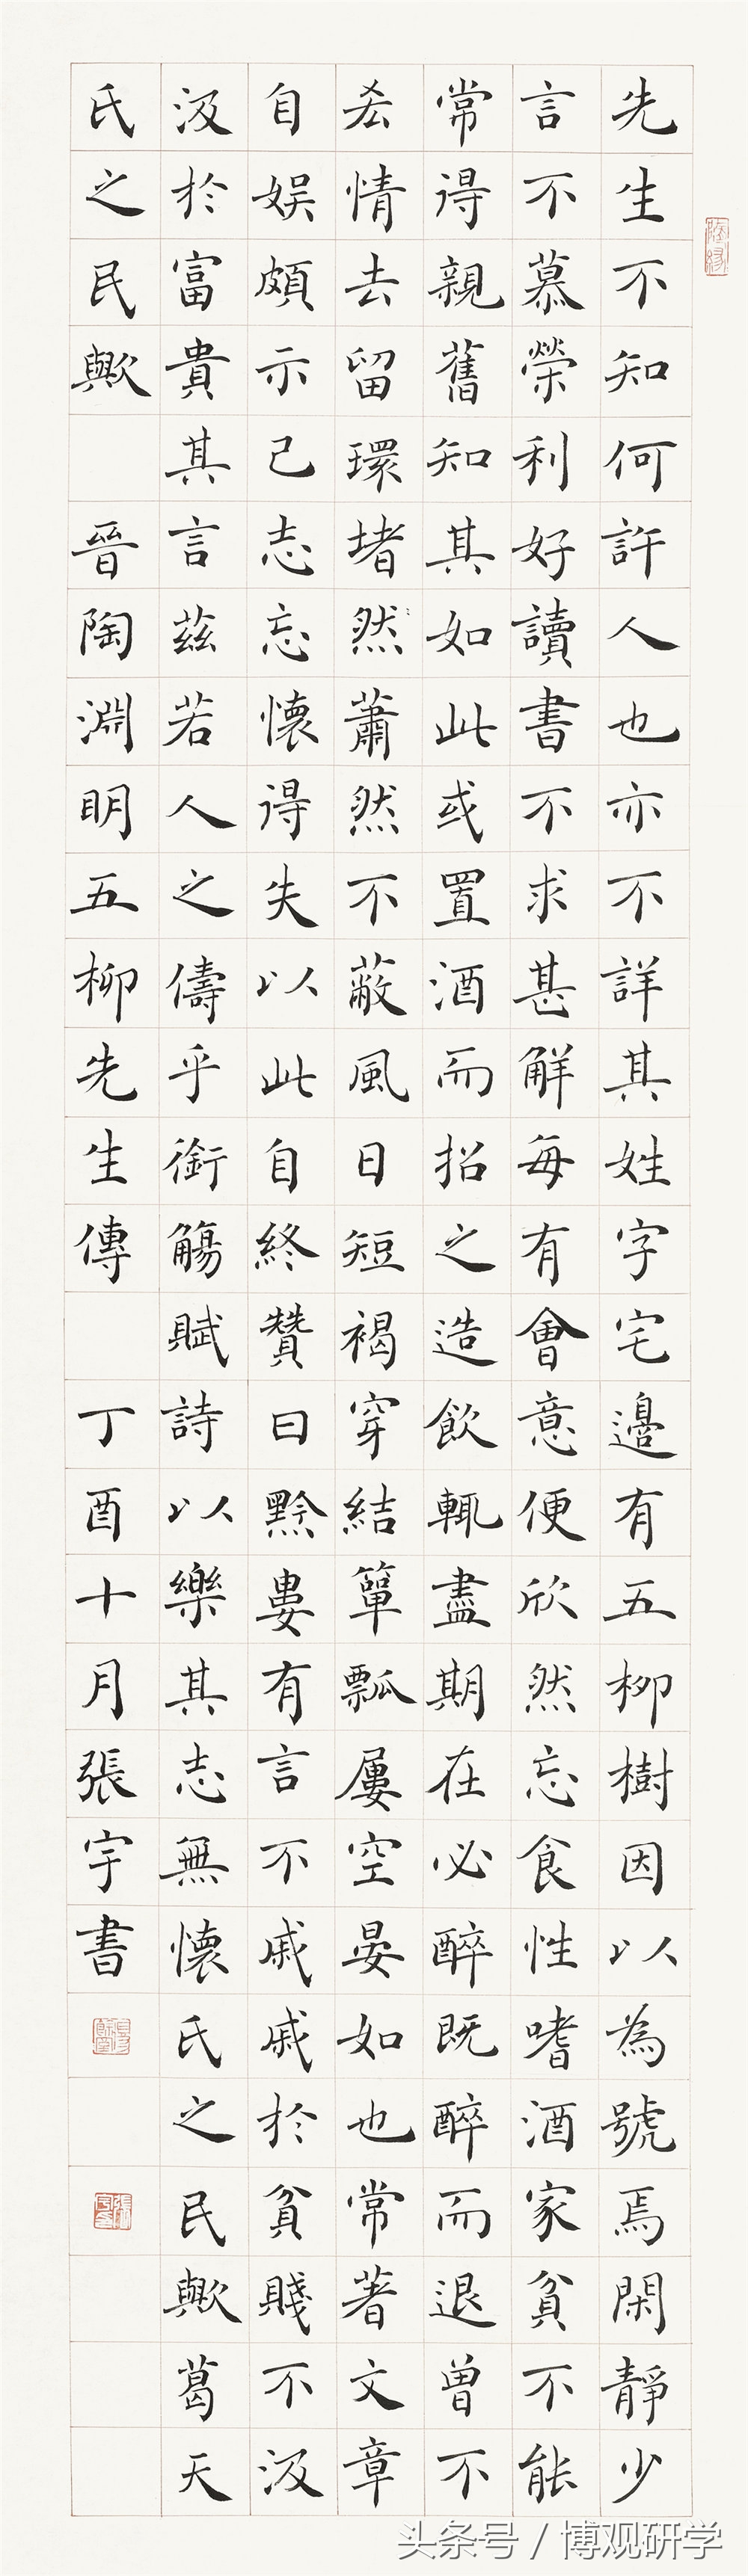 先生不知何許人也亦不詳其姓字宅邊有五柳樹因以為號焉閑靜少
言不慕榮利好讀書不求甚解每有會意便欣然忘食性嗜酒家貧不能
常得親舊知其如此或置酒而招之造飲輒盡期在必醉既醉而退曾不
吝情去留環堵然蕭然不蔽風日短褐穿結簞瓢屢空晏如也常著文章
自娛頗示己志忘懷得失以此自終贊曰黔婁有言不戚戚於貧賤不汲
汲於富貴其言茲若人之儔乎銜觴賦詩以樂其志無懷氏之民歟葛天
氏之民歟 晉陶淵明五柳先生傳 丁酉十月張宇書
头条号 / 博观研学